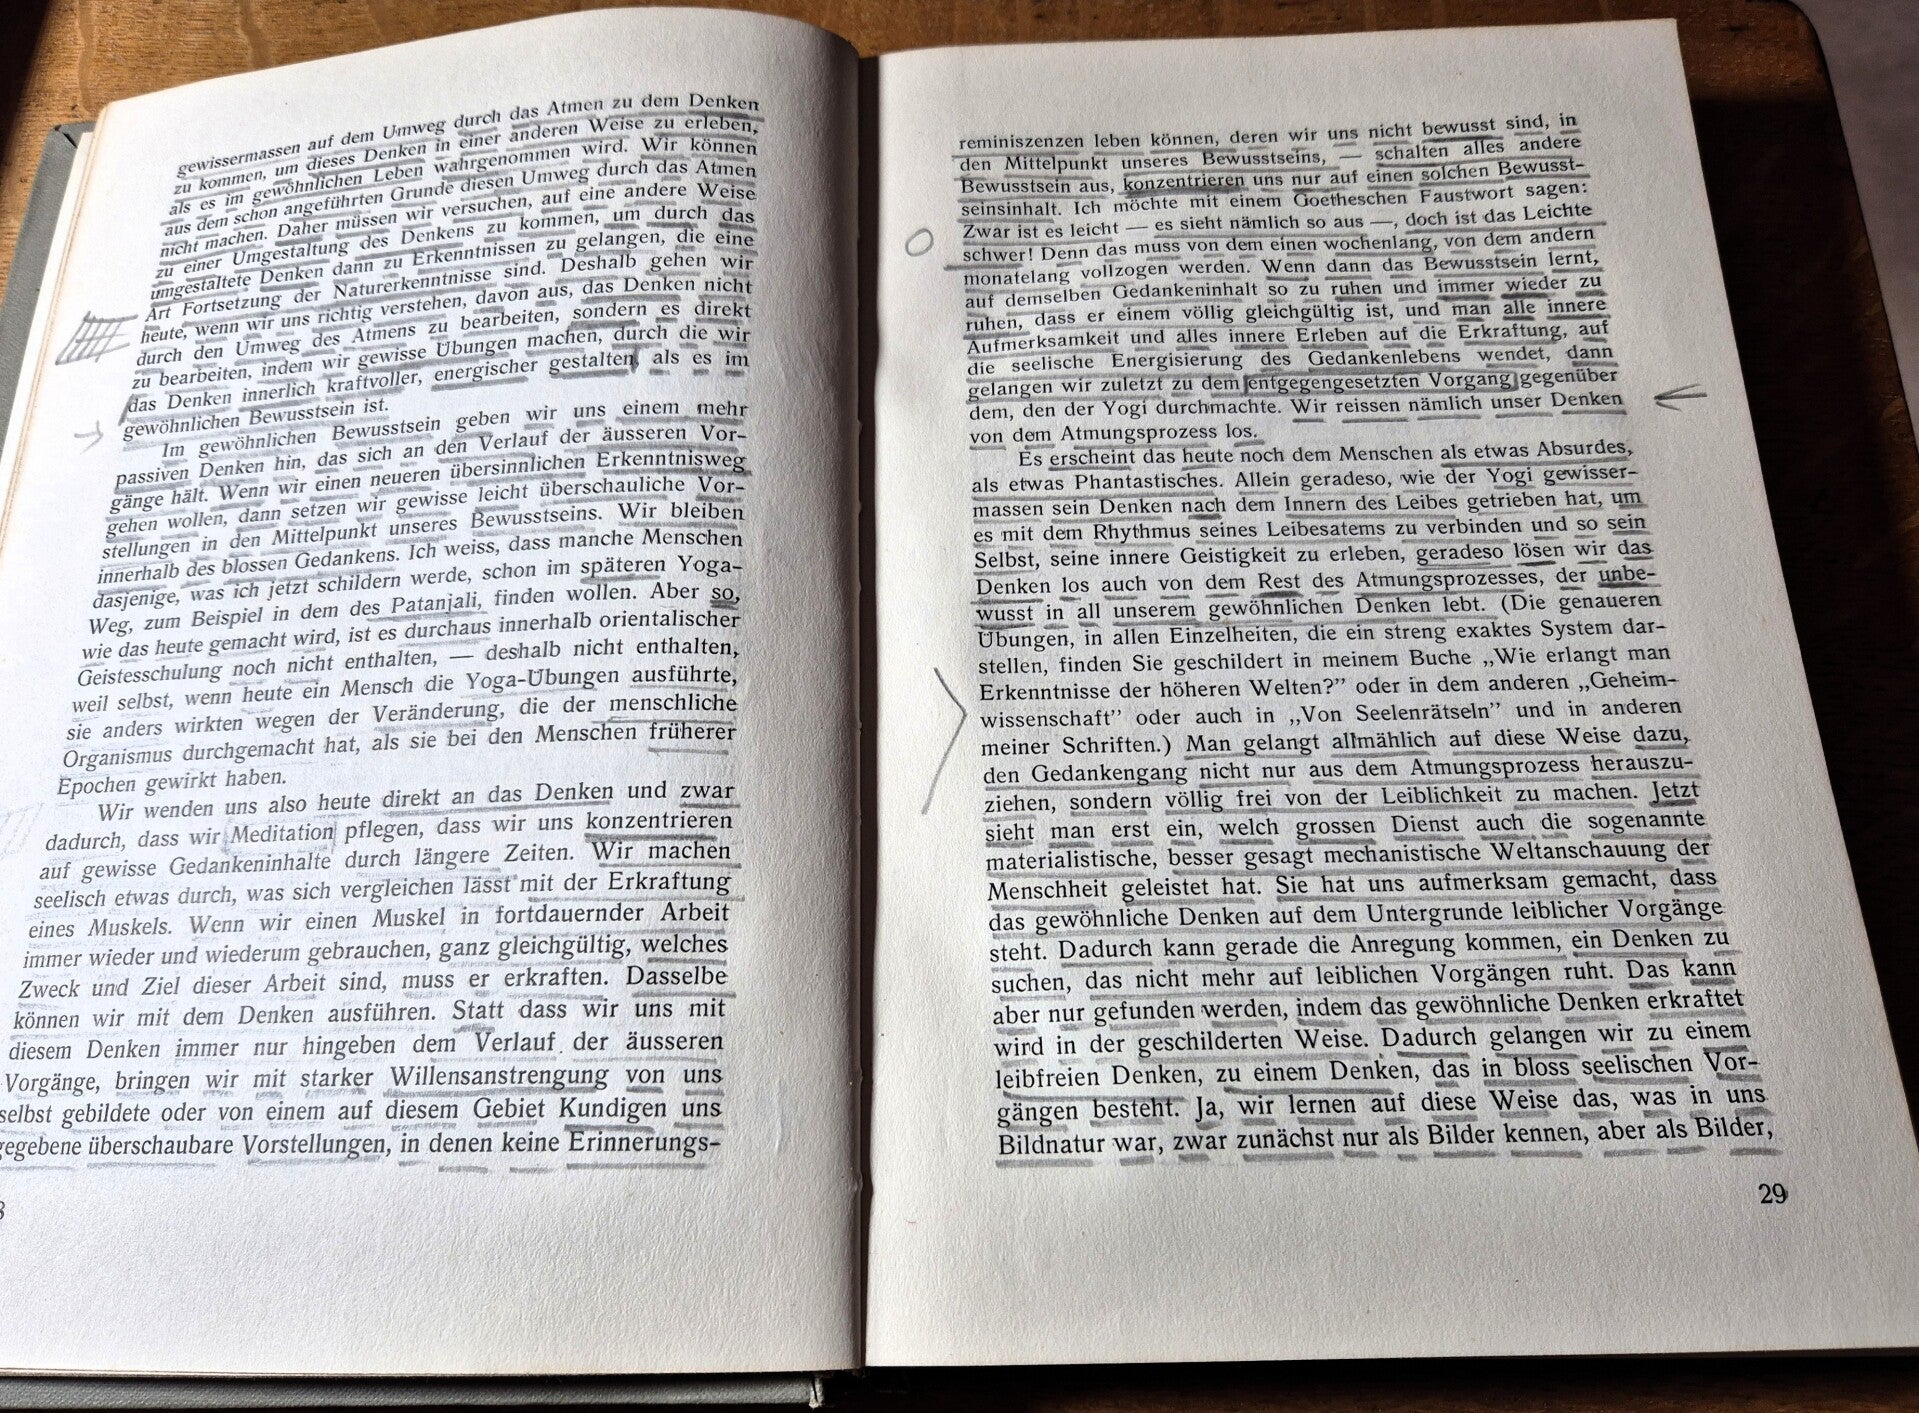 gewissermassen auf dem Umweg durch das Atmen zu dem Denken
zu kommen, um dieses Denken in einer anderen Weise zu erleben,
als es im gewöhnlichen Leben wahrgenommen wird. Wir können
aus dem schon angeführten Grunde diesen Umweg durch das Atmen
nicht machen. Daher müssen wir versuchen, auf eine andere Weise
zu einer Umgestaltung des Denkens zu kommen, um durch das
umgestaltete Denken dann zu Erkenntnissen zu gelangen, die eine
Art Fortsetzung der Naturerkenntnisse sind. Deshalb gehen wir
heute, wenn wir uns richtig verstehen, davon aus, das Denken nicht
durch den Umweg des Atmens zu bearbeiten, sondern es direkt
zu bearbeiten, indem wir gewisse Übungen machen, durch die wir
das Denken innerlich kraftvoller, energischer gestalten, als es im
gewöhnlichen Bewusstsein ist.
Im gewöhnlichen Bewusstsein geben wir uns einem mehr
passiven Denken hin, das sich an den Verlauf der äusseren Vor-
gänge hält. Wenn wir einen neueren übersinnlichen Erkenntnisweg
gehen wollen, dann setzen wir gewisse leicht überschauliche Vor-
stellungen in den Mittelpunkt unseres Bewusstseins. Wir bleiben
innerhalb des blossen Gedankens. Ich weiss, dass manche Menschen
dasjenige, was ich jetzt schildern werde, schon im späteren Yoga-
Weg, zum Beispiel in dem des Patanjali, finden wollen. Aber so,
wie das heute gemacht wird, ist es durchaus innerhalb orientalischer
Geistesschulung noch nicht enthalten, — deshalb nicht enthalten,
weil selbst, wenn heute ein Mensch die Yoga-Übungen ausführte,
sie anders wirkten wegen der Veränderung, die der menschliche
Organismus durchgemacht hat, als sie bei den Menschen früherer
Epochen gewirkt haben.
Wir wenden uns also heute direkt an das Denken und zwar
dadurch, dass wir Meditation pflegen, dass wir uns konzentrieren
auf gewisse Gedankeninhalte durch längere Zeiten. Wir machen
seelisch etwas durch, was sich vergleichen lässt mit der Erkraftung
eines Muskels. Wenn wir einen Muskel in fortdauernder Arbeit
immer wieder und wiederum gebrauchen, ganz gleichgültig, welches
Zweck und Ziel dieser Arbeit sind, muss er erkraften. Dasselbe
können wir mit dem Denken ausführen. Statt dass wir uns mit
diesem Denken immer nur hingeben dem Verlauf der äusseren
Vorgänge, bringen wir mit starker Willensanstrengung von uns
selbst gebildete oder von einem auf diesem Gebiet Kundigen uns
gegebene überschaubare Vorstellungen, in denen keine Erinnerungs-
reminiszenzen leben können, deren wir uns nicht bewusst sind, in
den Mittelpunkt unseres Bewusstseins, — schalten alles andere
Bewusstsein aus, konzentrieren uns nur auf einen solchen Bewusst-
seinsinhalt. Ich möchte mit einem Goetheschen Faustwort sagen:
Zwar ist es leicht — es sieht nämlich so aus —, doch ist das Leichte
schwer! Denn das muss von dem einen wochenlang, von dem andern
monatelang vollzogen werden. Wenn dann das Bewusstsein lernt,
auf demselben Gedankeninhalt so zu ruhen und immer wieder zu
ruhen, dass er einem völlig gleichgültig ist, und man alle innere
Aufmerksamkeit und alles innere Erleben auf die Erkraftung, auf
die seelische Energisierung des Gedankenlebens wendet, dann
gelangen wir zuletzt zu dem entgegengesetzten Vorgang gegenüber
dem, den der Yogi durchmachte. Wir reissen nämlich unser Denken
von dem Atmungsprozess los.
Es erscheint das heute noch dem Menschen als etwas Absurdes,
als etwas Phantastisches. Allein geradeso, wie der Yogi gewisser-
massen sein Denken nach dem Innern des Leibes getrieben hat, um
es mit dem Rhythmus seines Leibesatems zu verbinden und so sein
Selbst, seine innere Geistigkeit zu erleben, geradeso lösen wir das
Denken los auch von dem Rest des Atmungsprozesses, der unbe-
wusst in all unserem gewöhnlichen Denken lebt. (Die genaueren
Übungen, in allen Einzelheiten, die ein streng exaktes System dar-
stellen, finden Sie geschildert in meinem Buche „Wie erlangt man
Erkenntnisse der höheren Welten?” oder in dem anderen „Geheim-
wissenschaft” oder auch in „Von Seelenrätseln” und in anderen
meiner Schriften.) Man gelangt allmählich auf diese Weise dazu,
den Gedankengang nicht nur aus dem Atmungsprozess herauszu-
ziehen, sondern völlig frei von der Leiblichkeit zu machen. Jetzt
sieht man erst ein, welch grossen Dienst auch die sogenannte
materialistische, besser gesagt mechanistische Weltanschauung der
Menschheit geleistet hat. Sie hat uns aufmerksam gemacht, dass
das gewöhnliche Denken auf dem Untergrunde leiblicher Vorgänge
steht. Dadurch kann gerade die Anregung kommen, ein Denken zu
suchen, das nicht mehr auf leiblichen Vorgängen ruht. Das kann
aber nur gefunden werden, indem das gewöhnliche Denken erkraftet
wird in der geschilderten Weise. Dadurch gelangen wir zu einem
leibfreien Denken, zu einem Denken, das in bloss seelischen Vor-
gängen besteht. Ja, wir lernen auf diese Weise das, was in uns
Bildnatur war, zwar zunächst nur als Bilder kennen, aber als Bilder,
29